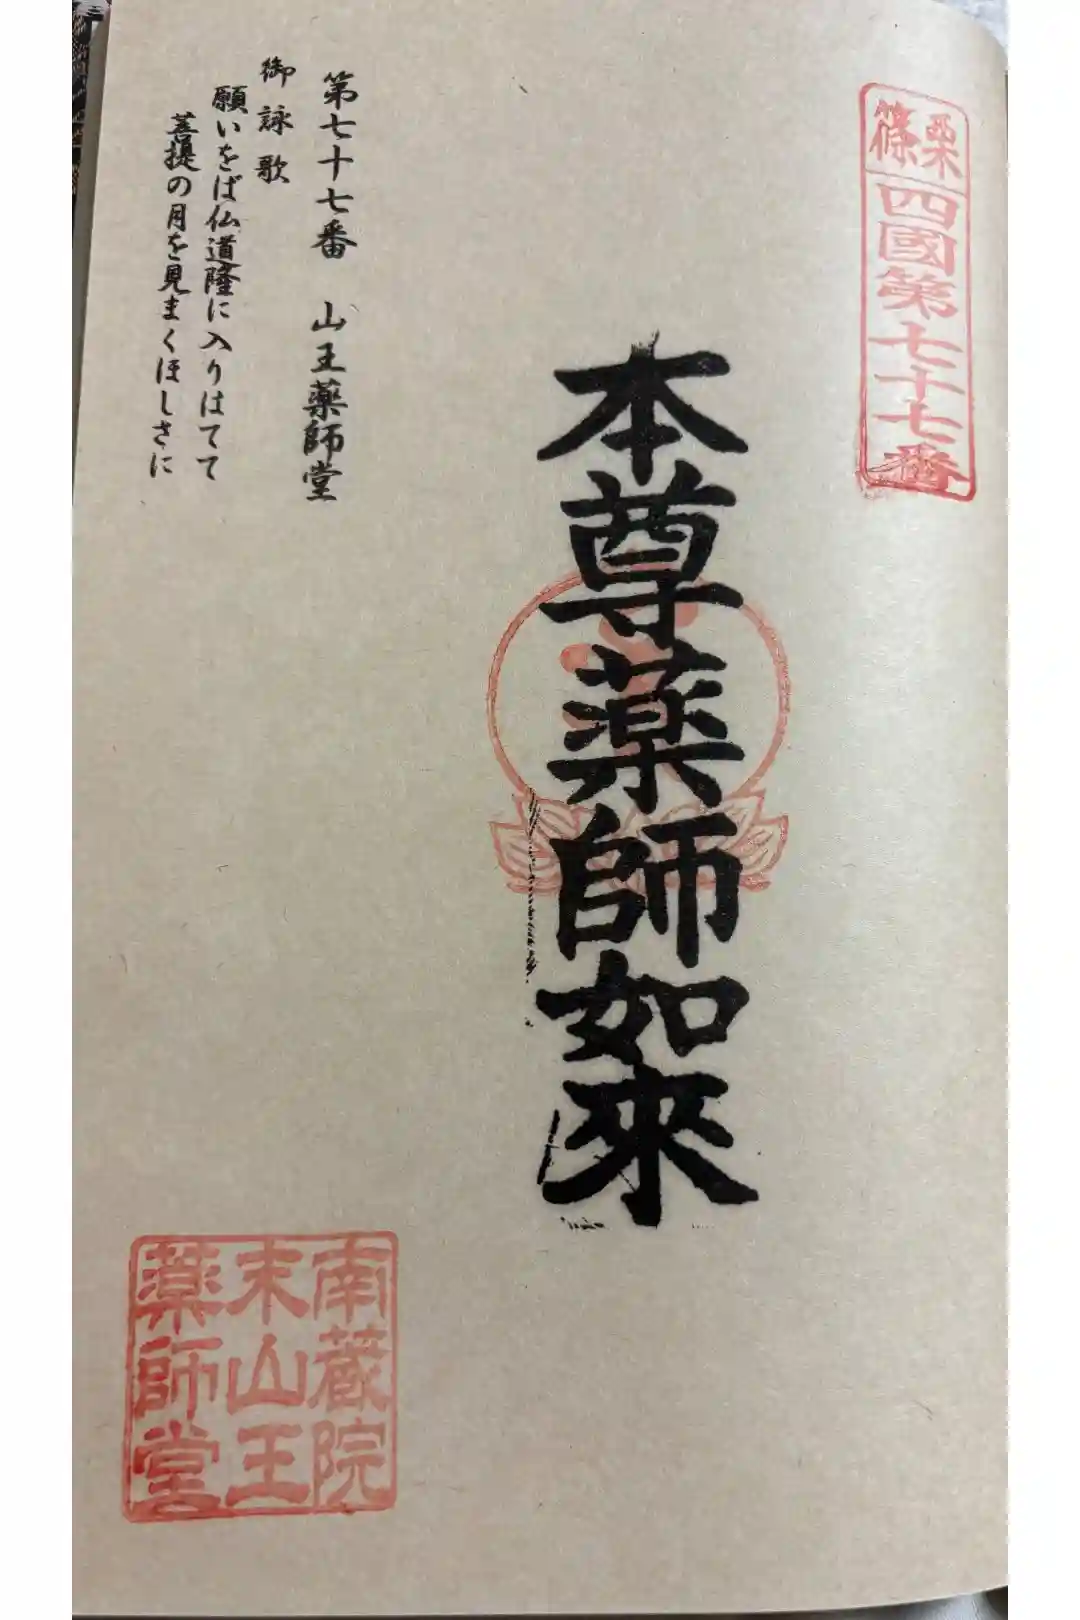 篠栗
四國第七十七番
本尊薬師如來
第七十七番 山王薬師堂
御詠歌
願いをば仏道隆に入りはてて
菩提の月を見まくほしさに
南蔵院
末山王
薬師堂